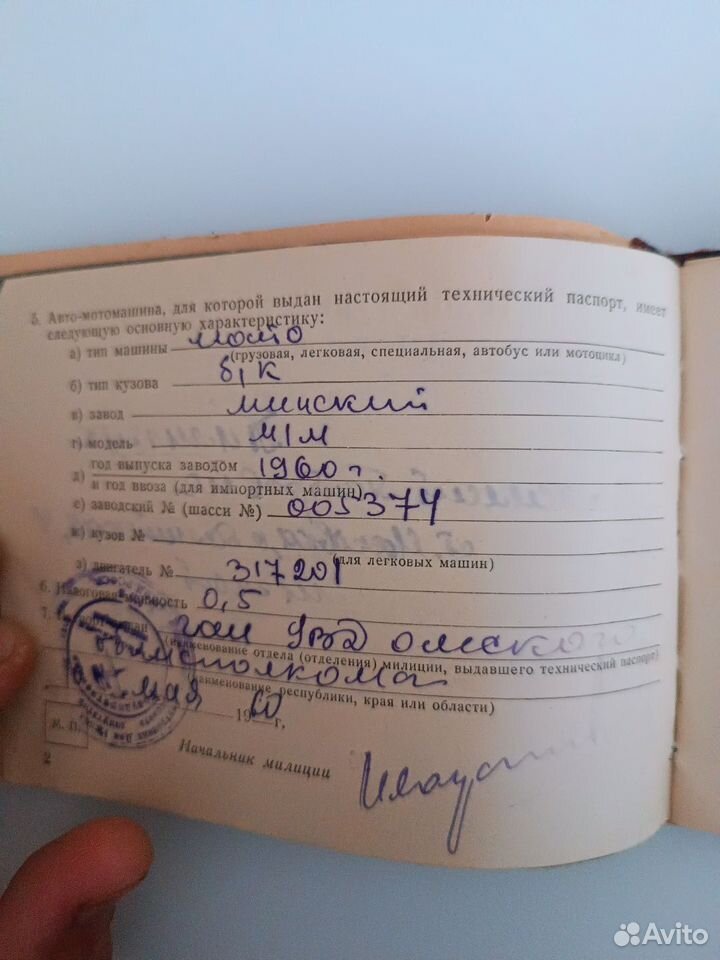 5. Авто-мотомашина, для которой выдан настоящий технический паспорт, имеет
следующую основную характеристику:
а) тип машины мото
(грузовая, легковая, специальная, автобус или мотоцикл)
б) тип кузова б/к
в) завод минский
г) модель М1М
д) год выпуска заводом 1960 г.
и год ввоза (для импортных машин)
е) заводский № (шасси №) 005374
ж) кузов №
(для легковых машин)
з) двигатель № 317201
6. Налоговая мощность 0,5
7. гаи увд омского
(наименование отдела (отделения) милиции, выдавшего технический паспорт)
облисполкома
(наименование республики, края или области)
мая 1960 г.
М. П.
Начальник милиции
2
Avito